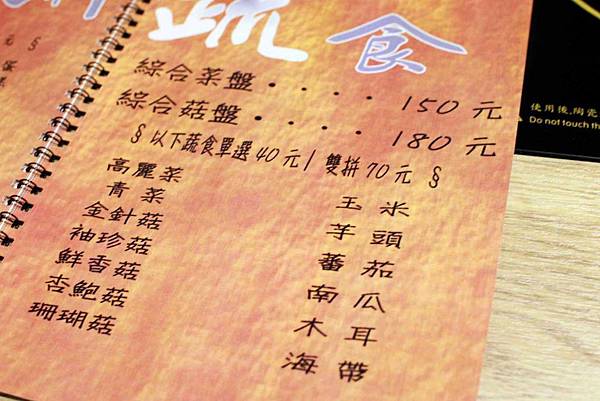 蔬食
綜合菜盤 . . . . 150 元
綜合菇盤 . . . . 180 元
§ 以下蔬食單選40元/雙拼70元 §
高麗菜
青菜
金針菇
袖珍菇
鮮香菇
杏鮑菇
珊瑚菇
玉米
芋頭
蕃茄
南瓜
木耳
海帶
使用後,陶瓷
Do not touch th